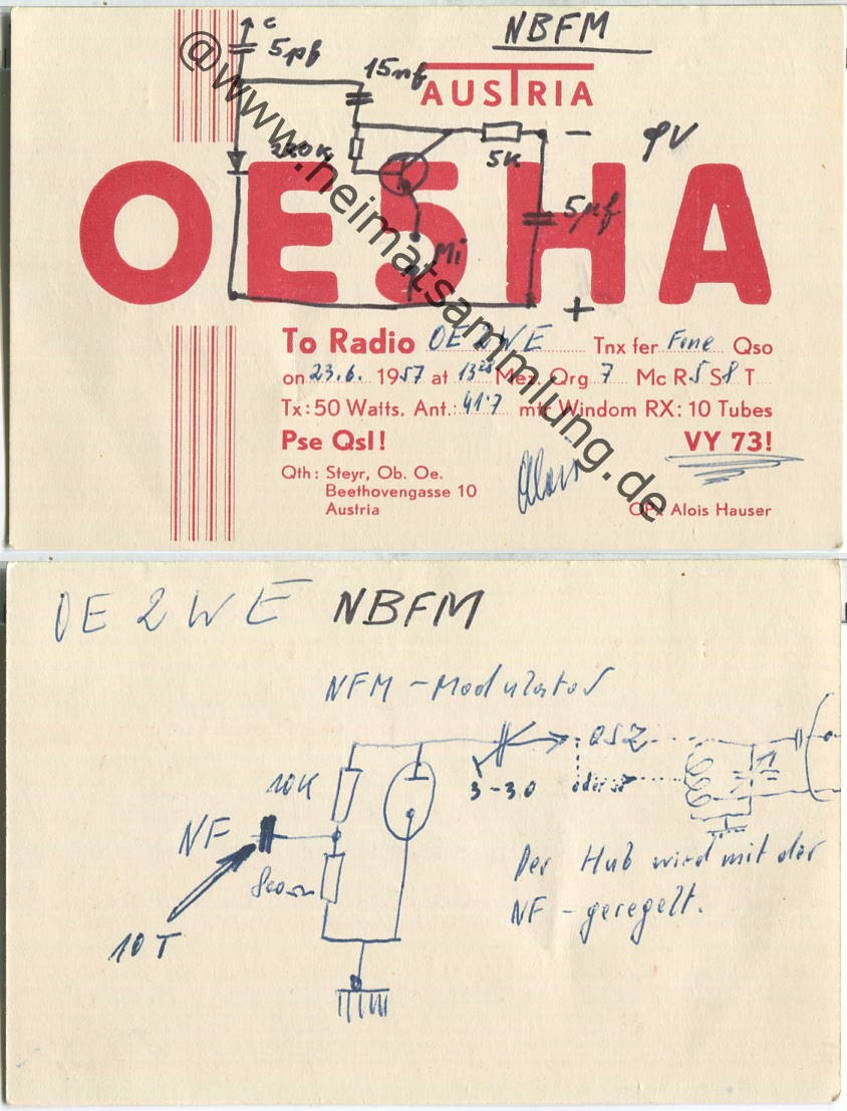 NBFM
c
5pf
15nf
AUSTRIA
5K
- 9V
OE5HA
5µf
Mi
+
To Radio OE2WE Tnx fer Fine Qso
on 23.6. 1957 at 13 Mez. Org 7 Mc R 5 S 8 T
Tx: 50 Watts. Ant.: 41·7 mtr Windom RX: 10 Tubes
Pse Qsl! VY 73!
Qth: Steyr, Ob. Oe.
Beethovengasse 10
Austria
Alois
OP: Alois Hauser
@www.heimatsammlung.de
OE2WE NBFM
NFM - Modulator
OSZ
10K
3-30
oder
NF
800Ω
10T
Der Hub wird mit der
NF - geregelt.